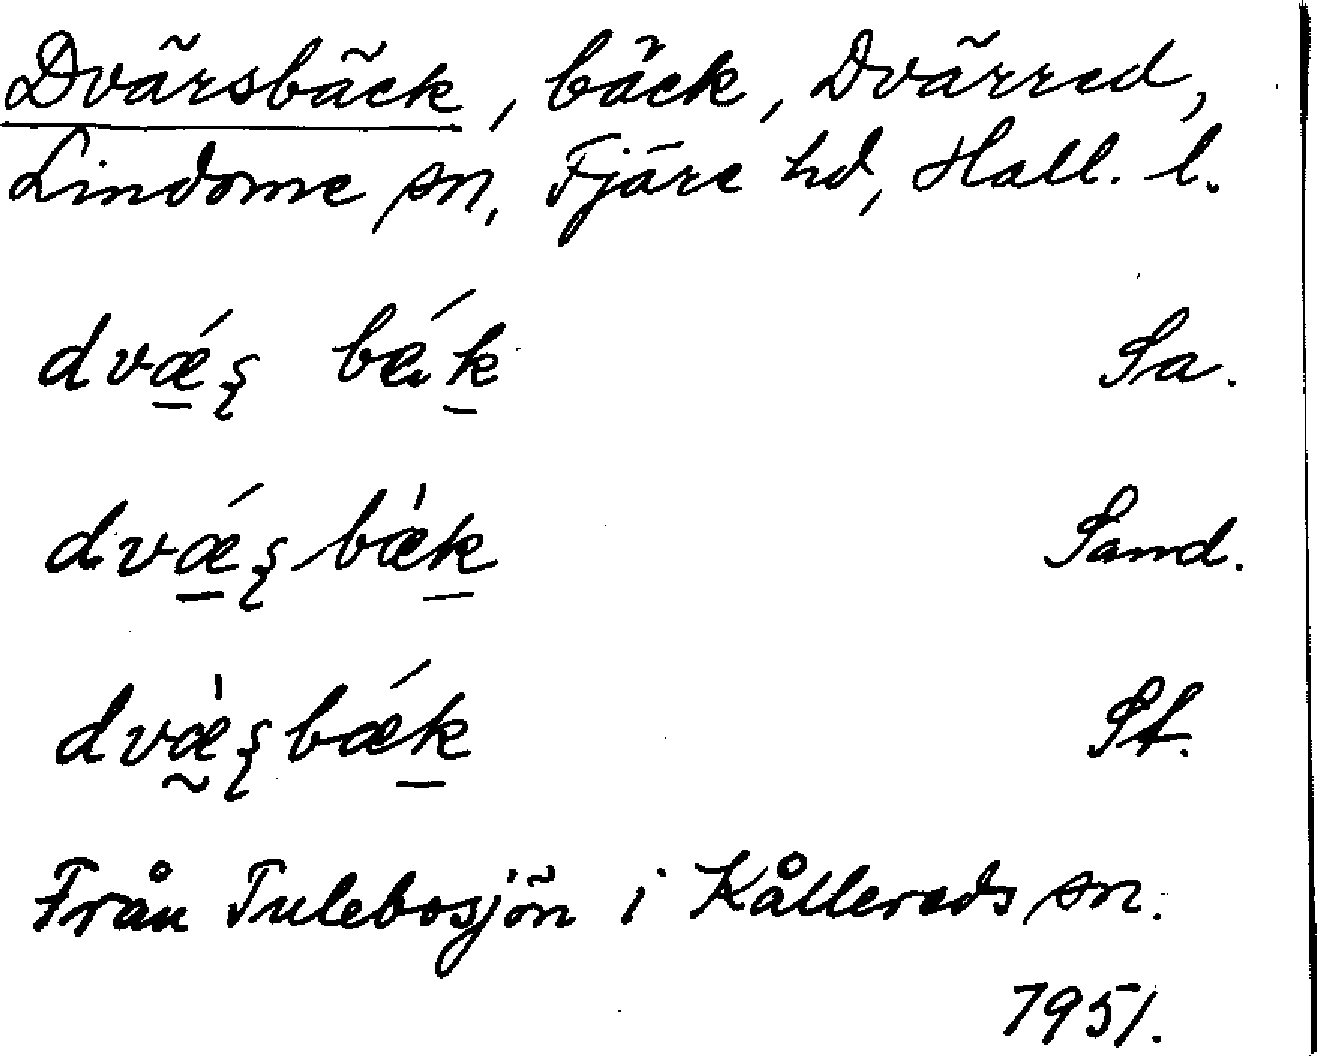 Dvärsbäck, bäck, Dvärred,
Lindome sn, Fjäre hd, Hall. l.
dvǽ̱ʂ bǽk̠ Sa.
dvǽ̱ʂbæ̍k̠ Sand.
dvæ̰̍ʂbǽk̠ St.
Från Tulebosjön i Kållereds sn.
1951.